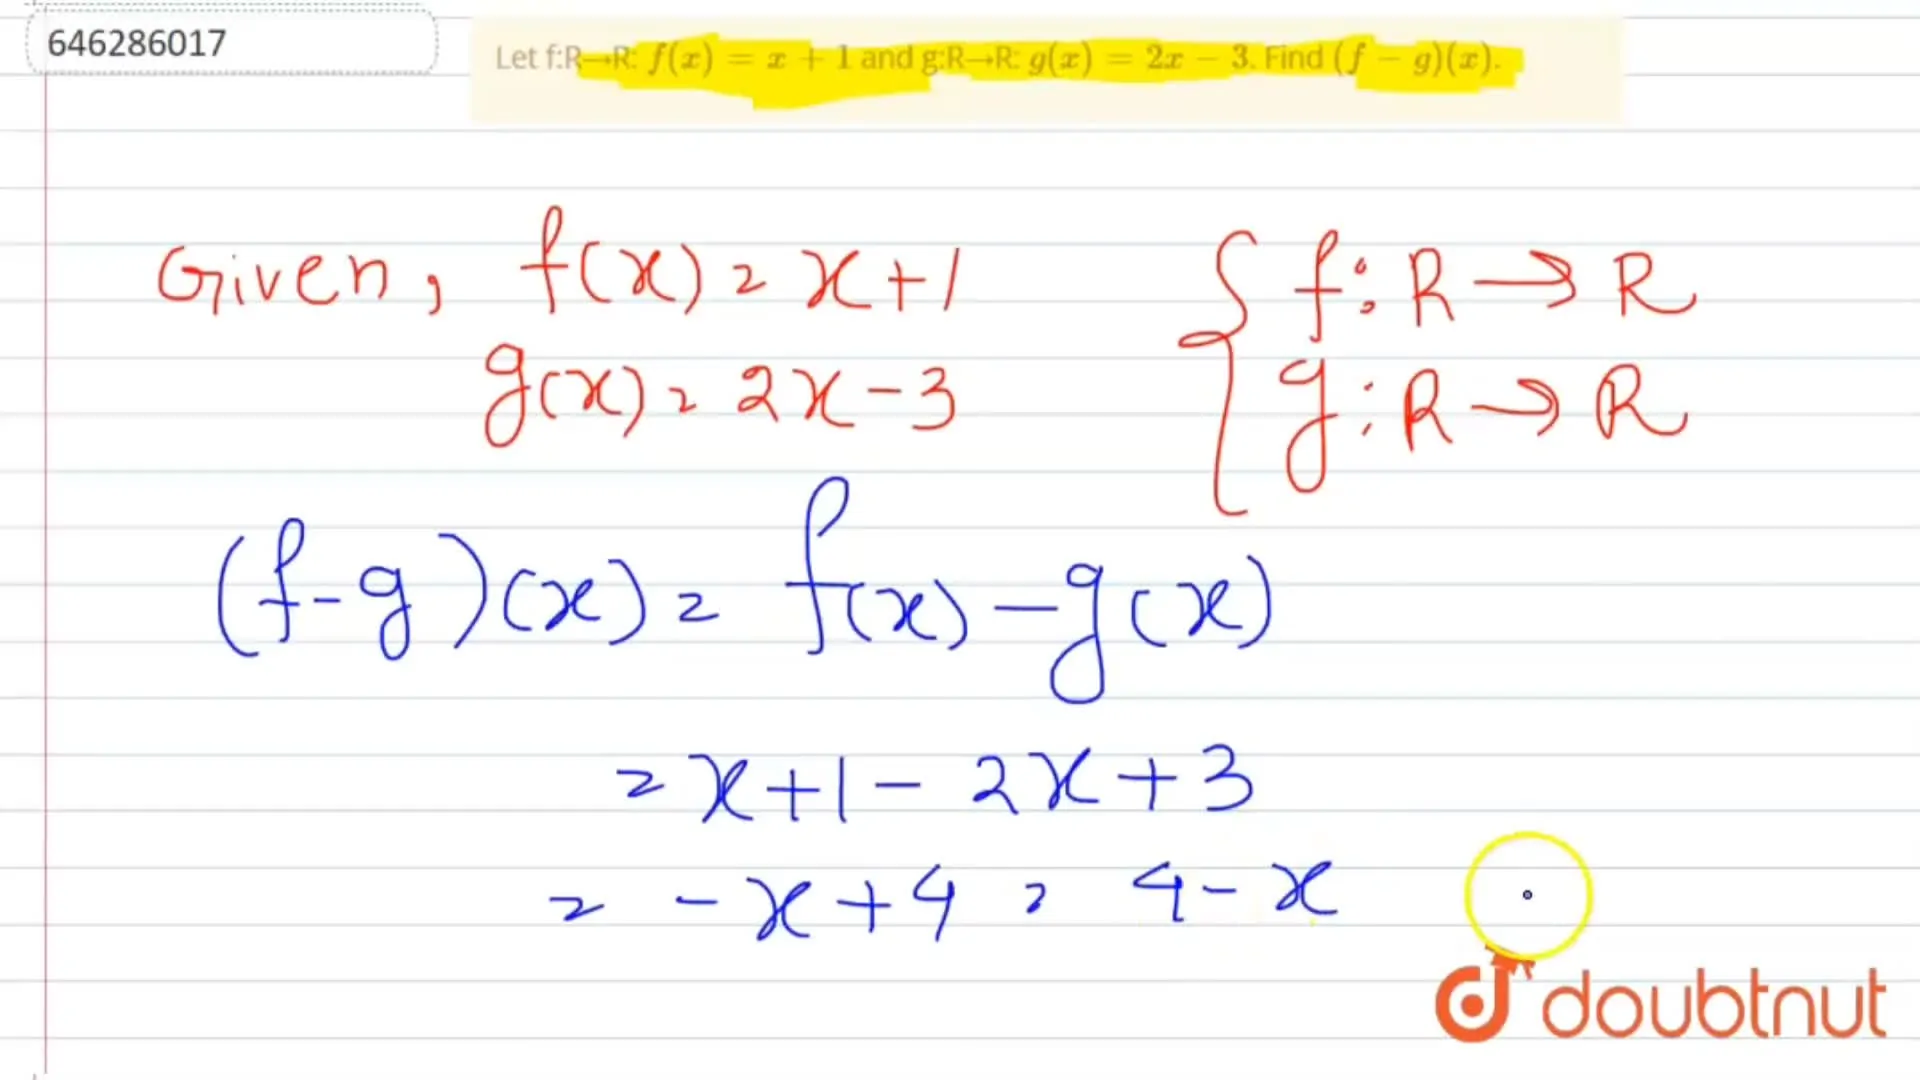 646286017
Let f:R→R: f(x) = x + 1 and g:R→R: g(x) = 2x − 3. Find (f − g)(x).
Given, f(x) = x+1 { f: R → R
g(x) = 2x-3 g: R → R
(f-g)(x) = f(x) - g(x)
= x+1 - 2x+3
= -x+4 = 4-x
doubtnut